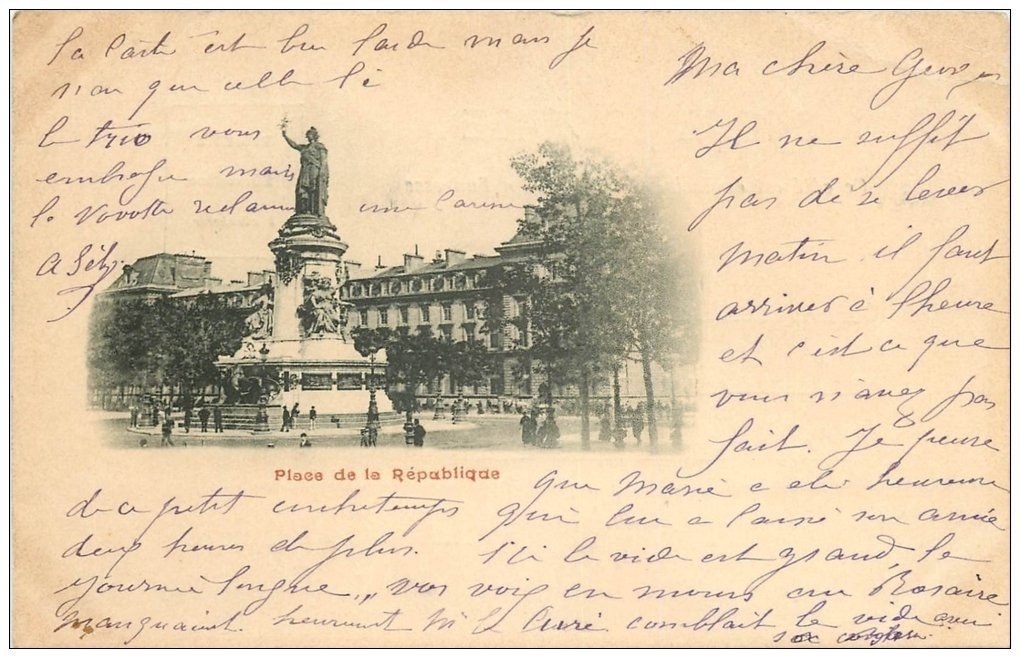 Ma chère
Il ne suffit
pas de se lever
matin. il faut
arriver à l'heure
et c'est ce que
vous n'avez pas
fait. Je pense
que Marie a été heureuse
de ce petit contretemps qui lui a laissé son amie
deux heures de plus. Ici le vide est grand, le
journée longue, vos voix en moins au Rosaire
manquaient. heureusement le Curé comblait le vide avec
La carte est bien laide mais je
n'ai que celle là
le trio vous
embrasse mais
la réclame une
Place de la République